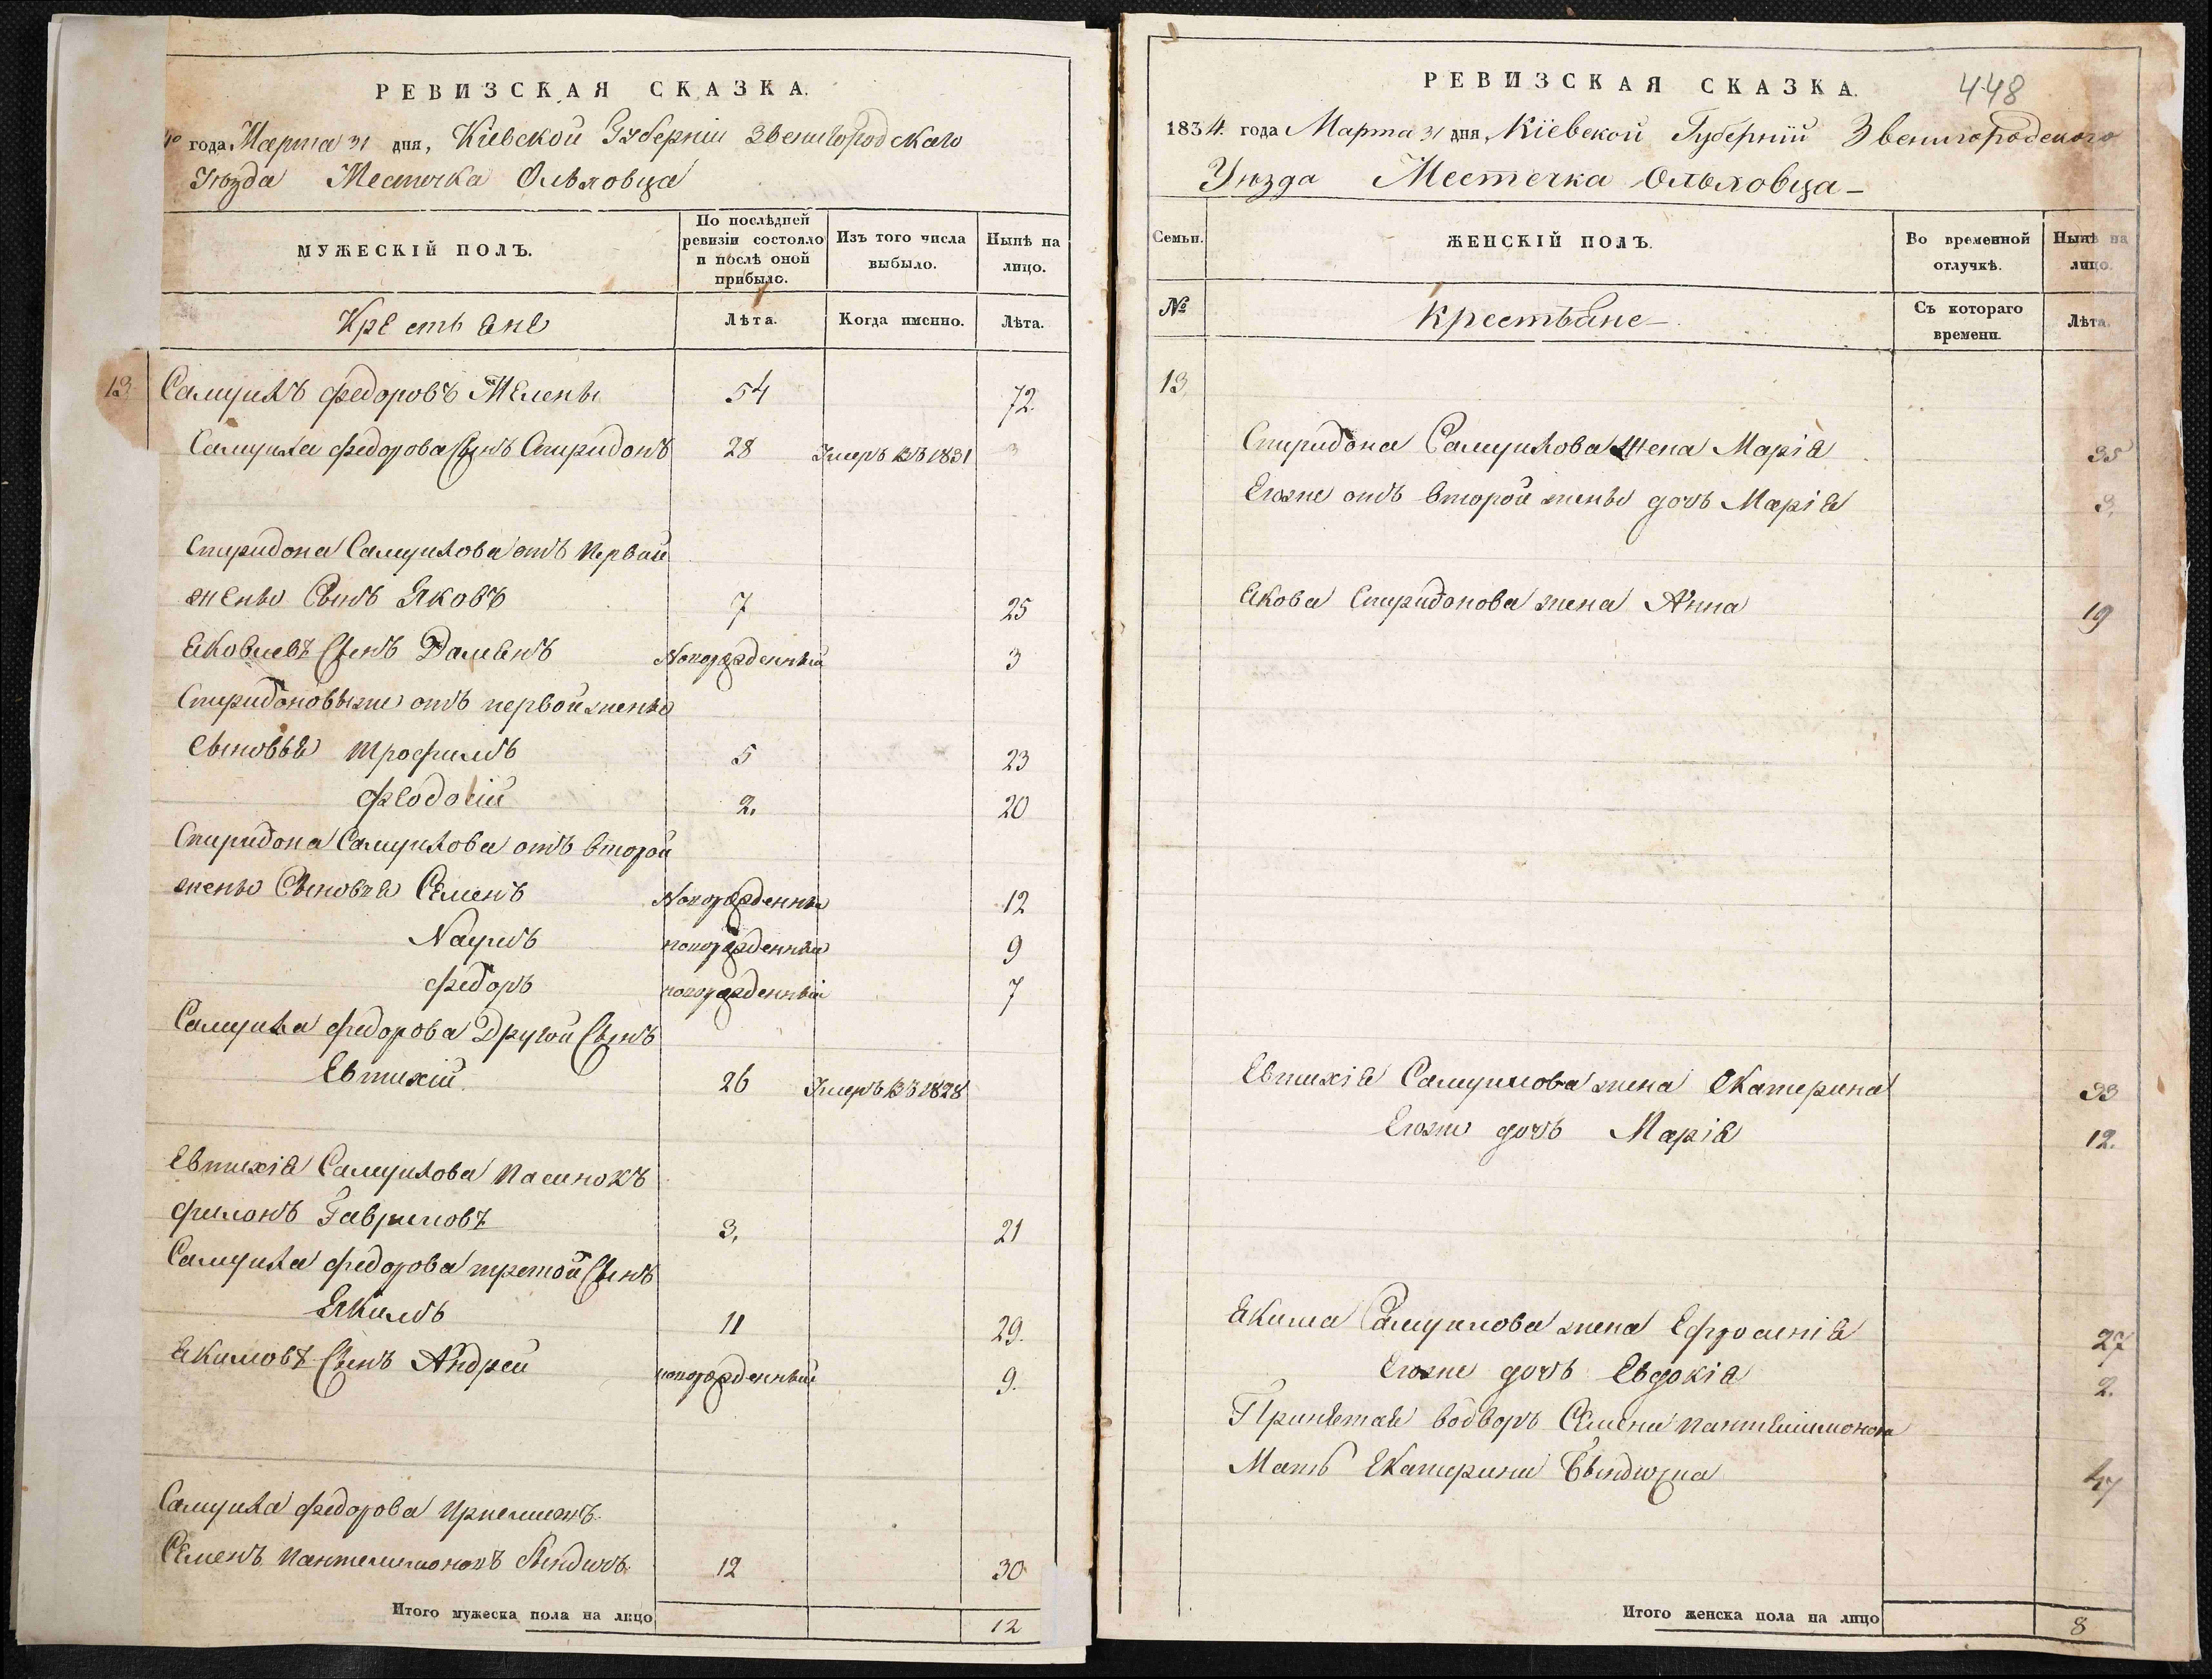 РЕВИЗСКАЯ СКАЗКА.
года Марта 31 дня, Кіевской Губерніи Звенигородскаго
Уѣзда Местечка Ольховца
МУЖЕСКІЙ ПОЛЪ.
По послѣдней ревизіи состояло и послѣ оной прибыло.
Изъ того числа выбыло.
Нынѣ на лицо.
Крестьяне
Лѣта.
Когда именно.
Лѣта.
13 Самуилъ Федоровъ 54 72.
Самуила Федорова Сынъ Спиридонъ 28 Умеръ въ 1831
Спиридона Самуилова отъ первой
жены Сынъ Яковъ 7 25
Яковлевъ Сынъ Дамянъ Новорожденный 3
Спиридоновыже отъ первой жены
Сыновья Трофимъ 5 23
Феодосій 2. 20
Спиридона Самуилова отъ второй
жены Сыновья Семенъ Новорожденный 12
Наумъ новорожденный 9
Федоръ новорожденный 7
Самуила Федорова Другой Сынъ
Евтихій 26 Умеръ въ 1828
Евтихія Самуилова пасинокъ
Филонъ Гавриловъ 3, 21
Самуила Федорова третой Сынъ
Якимъ 11 29.
Якимовъ Сынъ Андрей новорожденный 9.
Самуила Федорова
Семенъ Пантелимоновъ 12 30
Итого мужеска пола на лицо 12
РЕВИЗСКАЯ СКАЗКА.
448
1834. года Марта 31 дня, Кіевской Губерніи Звенигородского
Уѣзда Местечка Ольховца
Семьи.
ЖЕНСКІЙ ПОЛЪ.
Во временной отлучкѣ.
Нынѣ на лицо.
№
Крестьяне
Съ котораго времени.
Лѣта.
13
Спиридона Самуилова жена Марія 35
Егоже отъ второй жены дочь Марія 3,
Якова Спиридонова жена Анна 19
Евтихія Самуилова жена Екатерина 33
Егоже дочь Марія 12.
Якима Самуилова жена Ефросинія 27
Егоже дочь Евдокія 2.
Принятая водворъ Семена Пантелиимонова
Мать Екатерина 47
Итого женска пола на лицо 8